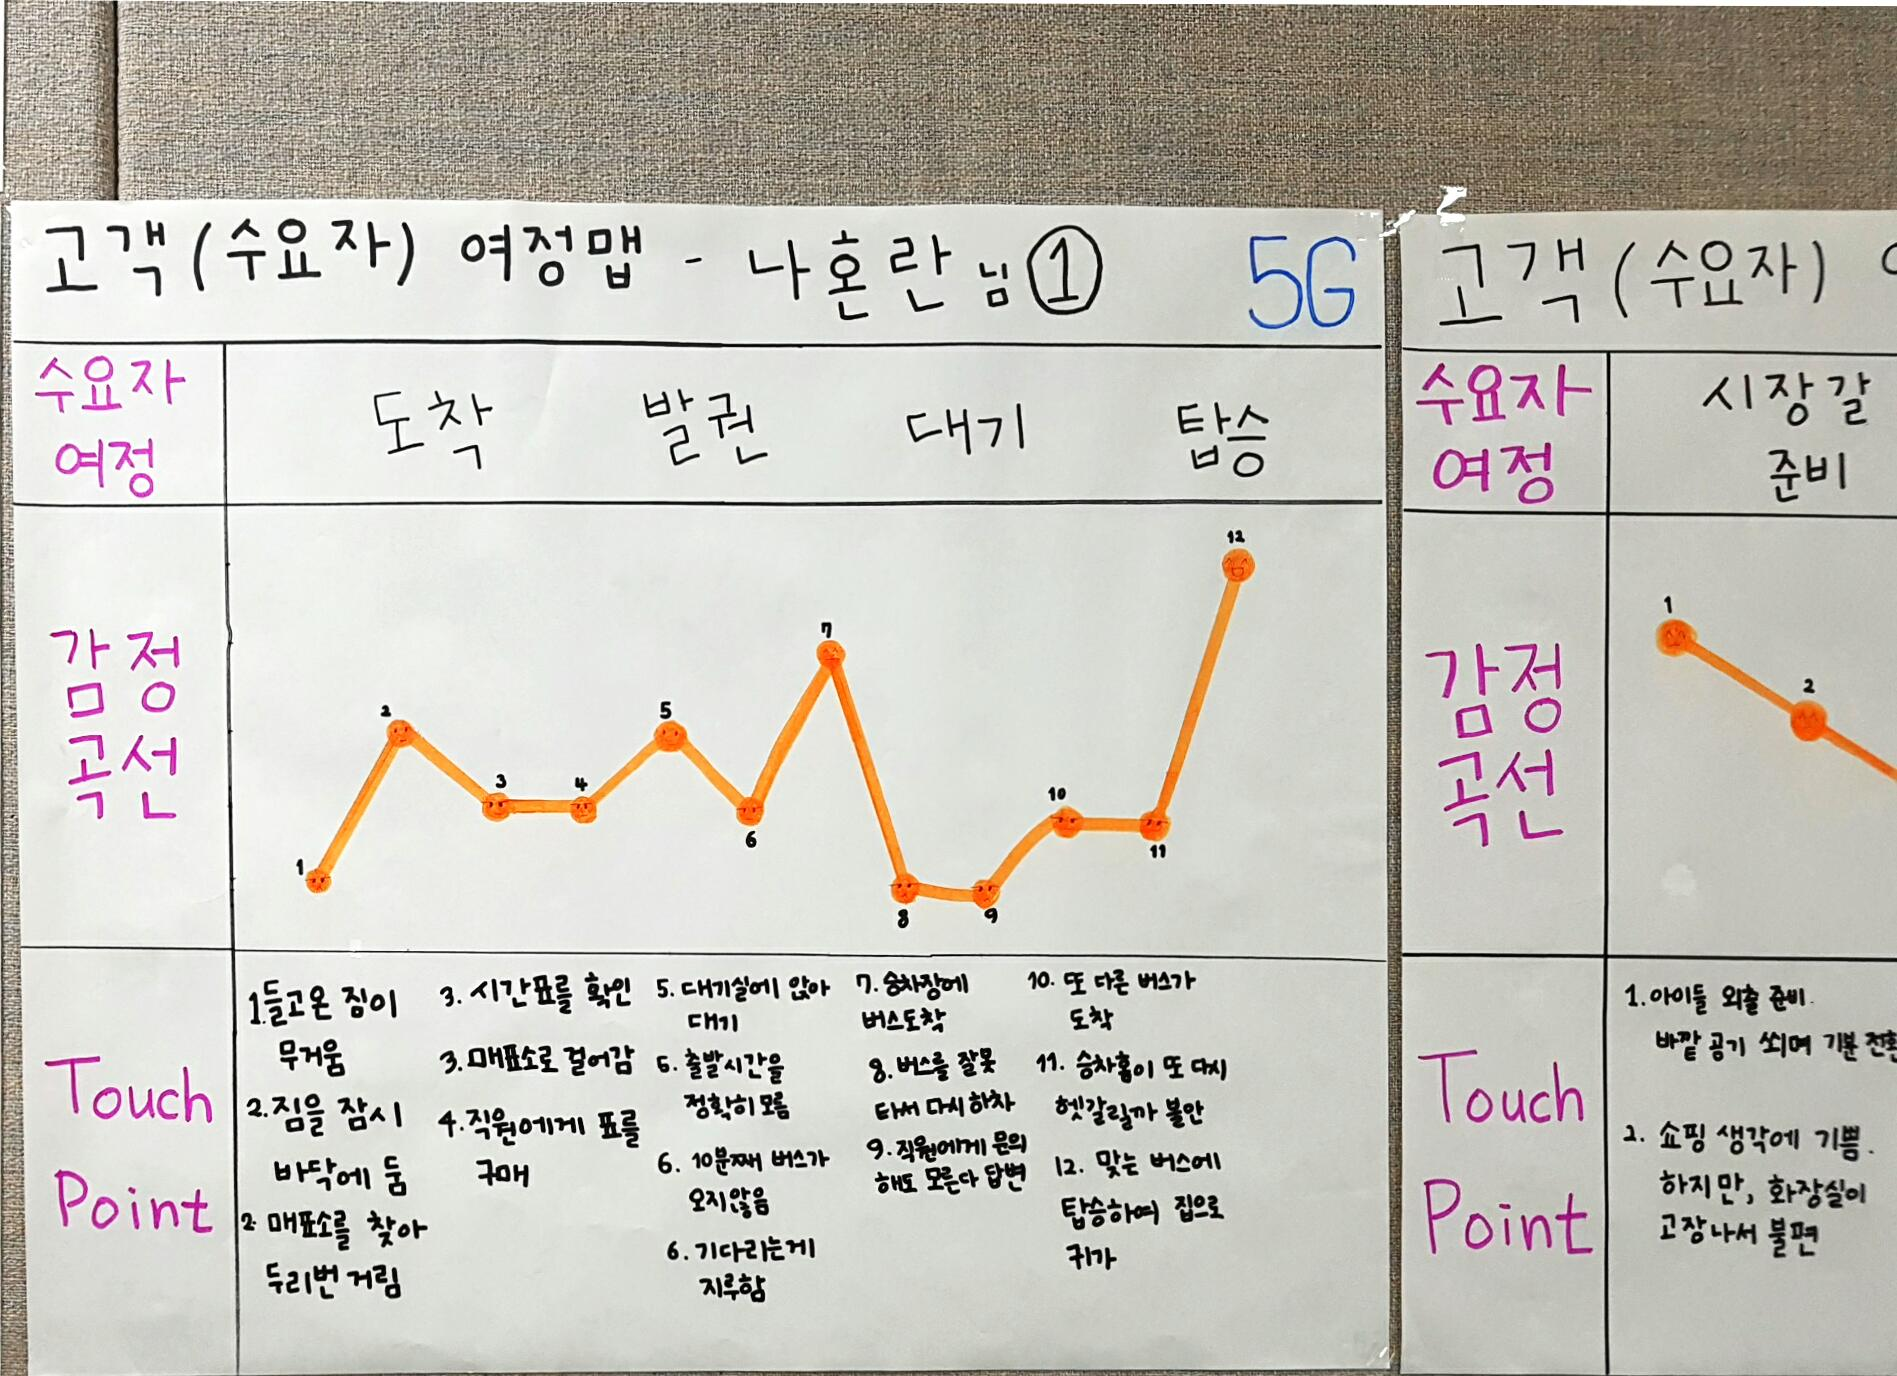 고객(수요자) 여정맵 - 나혼란님 ①
5G
수요자
여정
도착 발권 대기 탑승
감정
곡선
1
2
3
4
5
6
7
8
9
10
11
12
Touch
Point
1. 들고온 짐이
무거움
2. 짐을 잠시
바닥에 둠
2. 매표소를 찾아
두리번 거림
3. 시간표를 확인
3. 매표소로 걸어감
4. 직원에게 표를
구매
5. 대기실에 앉아
대기
6. 출발시간을
정확히 모름
6. 10분째 버스가
오지않음
6. 기다리는게
지루함
7. 승차장에
버스도착
8. 버스를 잘못
타서 다시 하차
9. 직원에게 문의
해도 모른다 답변
10. 또 다른 버스가
도착
11. 승차홈이 또 다시
헷갈릴까 불안
12. 맞는 버스에
탑승하여 집으로
귀가
고객(수요자)
수요자
여정
시장갈
준비
감정
곡선
1
2
Touch
Point
1. 아이들 외출 준비.
바깥 공기 쐬며 기분 전환
2. 쇼핑 생각에 기쁨.
하지만, 화장실이
고장나서 불편